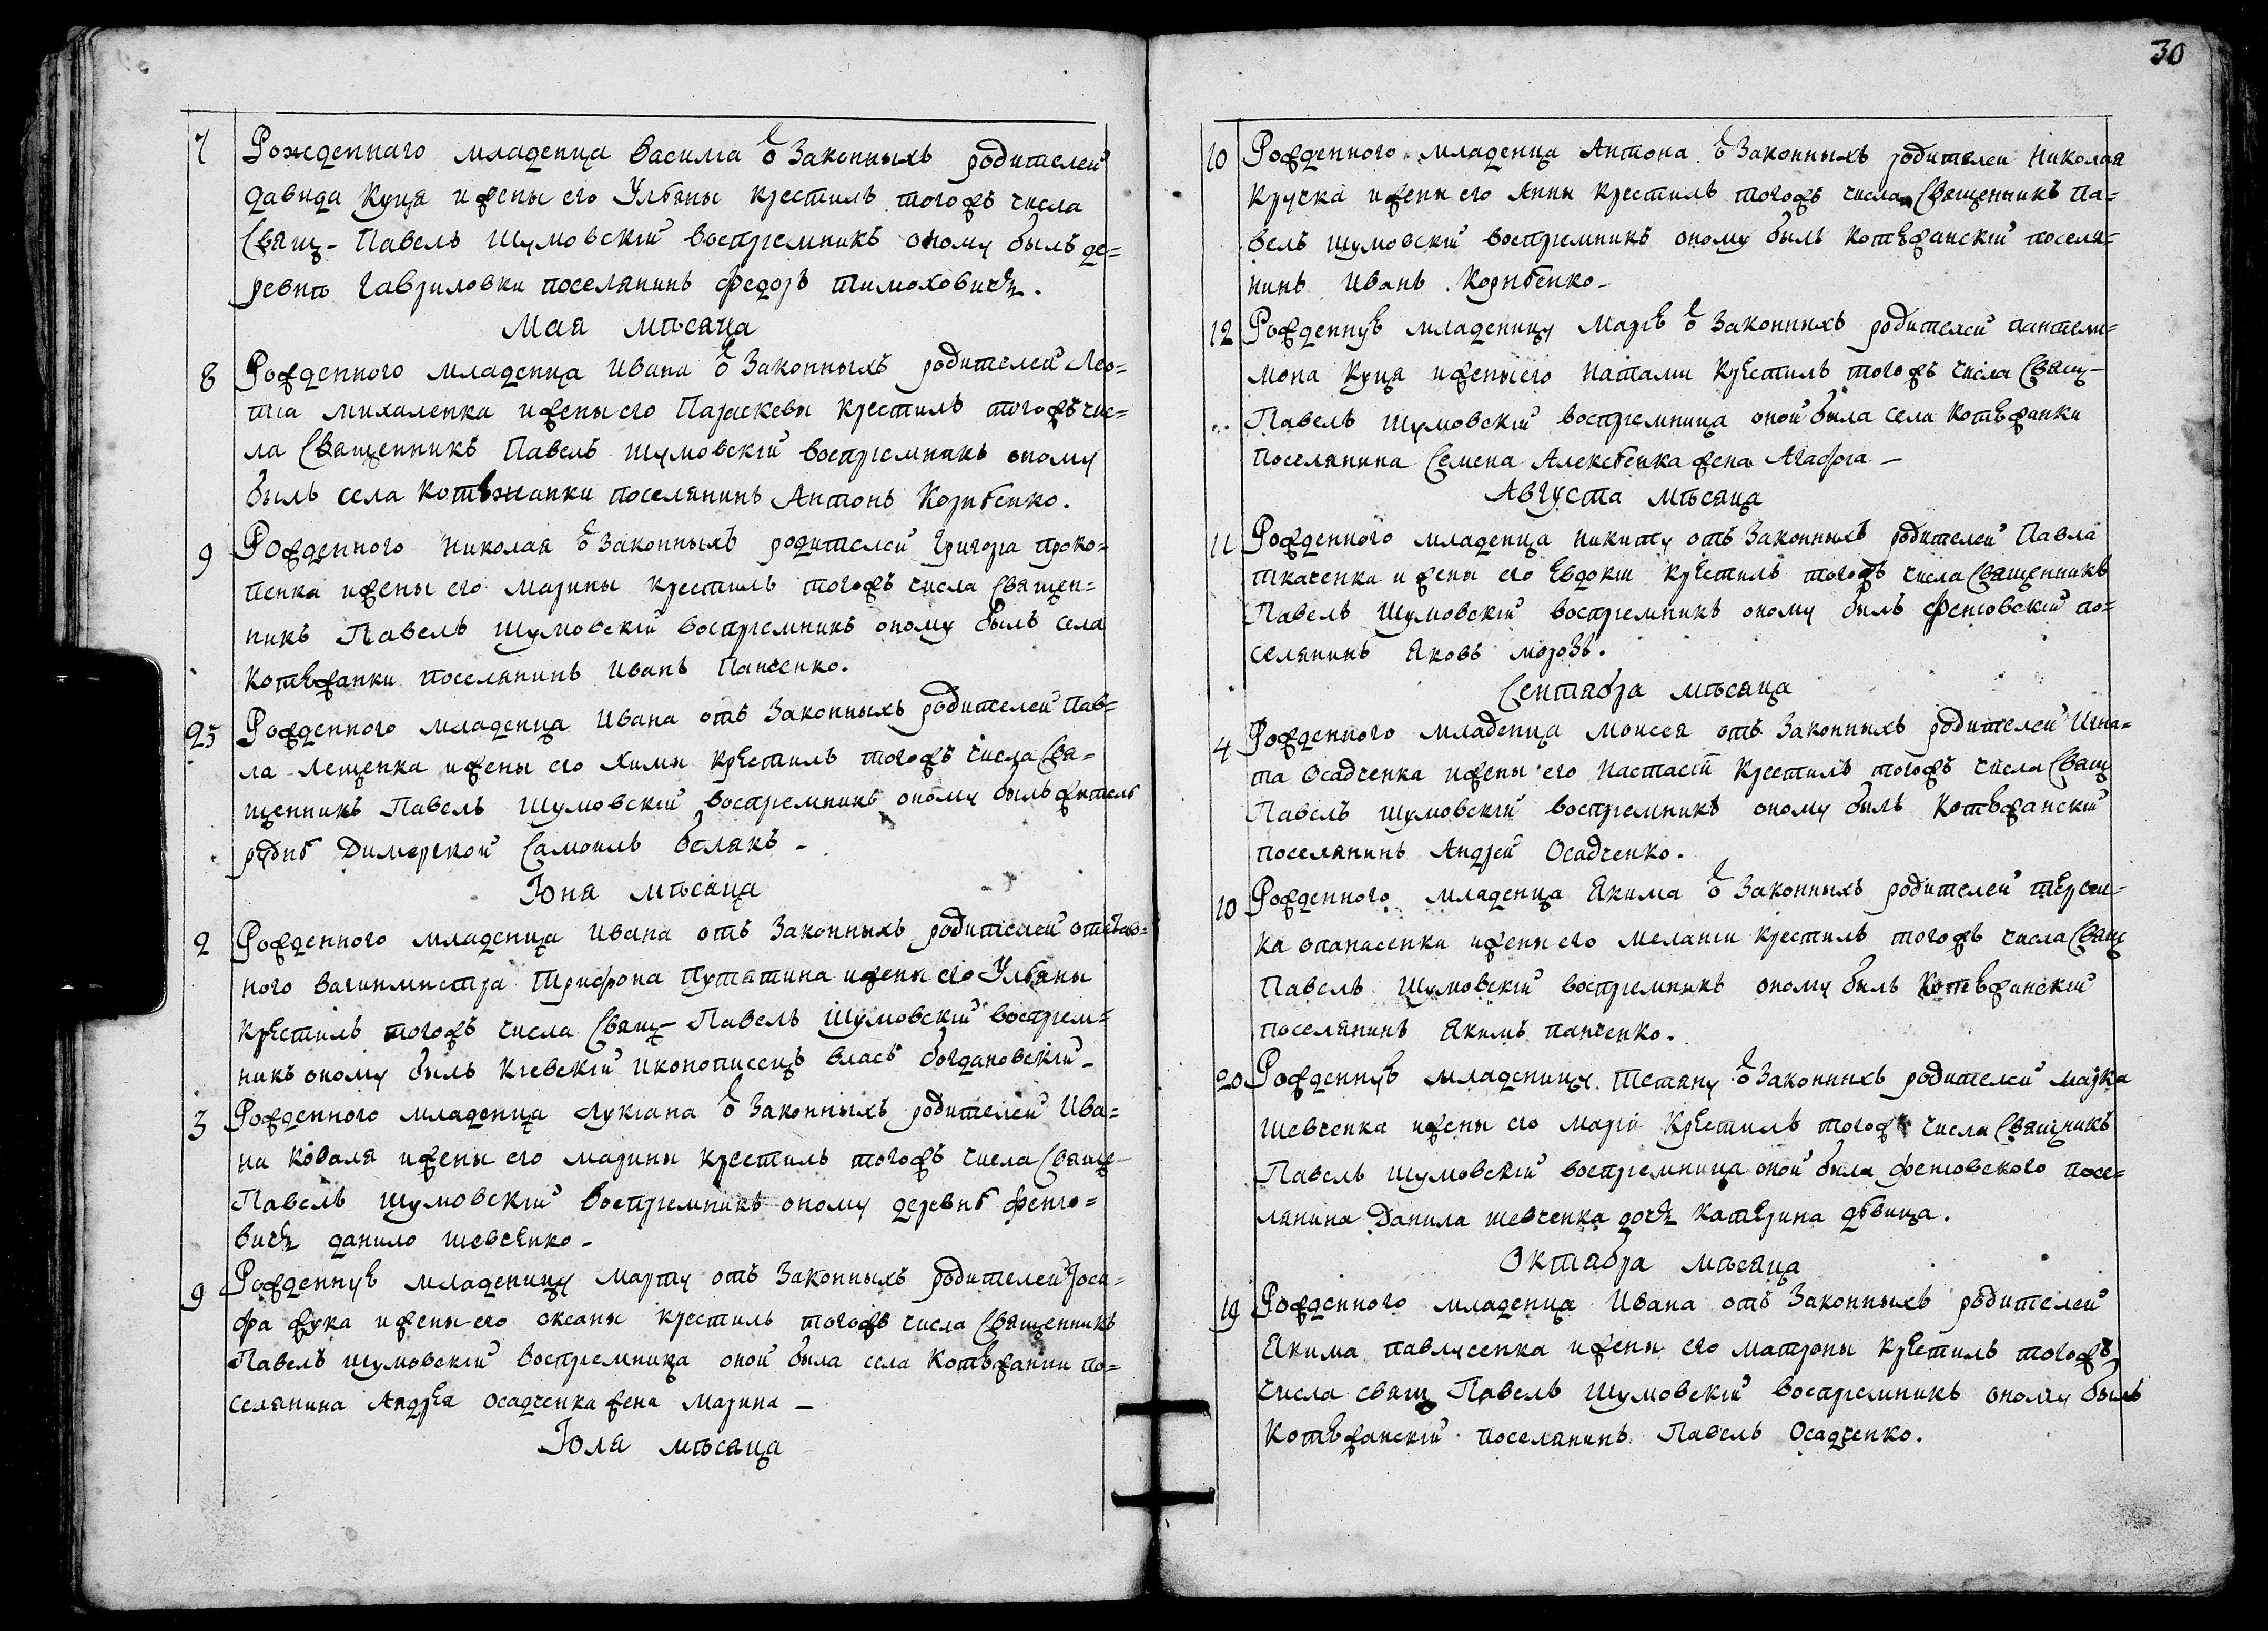 7 Рожденнаго младенца Василиа ѿ Законныхъ родителей
давида Куця и жены его Улбяны крестилъ тогожъ числа
Свящ- Павелъ Шумовскій воспріемникъ оному былъ де=
ревнѣ Гавриловки поселянинъ федоръ тимохович.
Мая мѣсяца
8 Рожденного младенца Ивана ѿ Законныхъ родителей Лео=
тиа михаленка и жены его Параскевы крестилъ тогожъ чис=
ла Священникъ Павелъ шумовскій воспріемникъ оному
былъ села котѣжанки поселянинъ Антонъ Корнѣенко.
9 Рожденного николая ѿ Законныхъ родителей Григоріа проко=
пенка и жены его марины крестилъ тогожъ числа Священ=
никъ Павелъ шумовскій воспріемникъ оному былъ села
котѣжанки поселянинъ Иванъ Панченко.
25 Рожденного младенца Ивана отъ Законныхъ родителей Пав=
ла Лещенка и жены его Химы крестилъ тогожъ числа Свя=
щенникъ Павелъ Шумовскій воспріемникъ оному былъ житель
руднѣ Димерской Самоилъ бѣлякъ -
Іюня мѣсяца
2 Рожденного младенца Ивана отъ Законныхъ родителей отстав=
ного вагинмистра Трифона Путятина и жены его Улбяны
крестилъ тогожъ числа Свящ- Павелъ Шумовскій воспріем=
никъ оному былъ кіевскій иконописецъ власъ богдановскій -
3 Рожденного младенца Лукіана ѿ Законныхъ родителей Ива=
на Коваля и жены его марины крестилъ тогожъ числа Свяще-
Павелъ шумовскій воспріемникъ оному деревнѣ феню=
вичъ данило шевченко -
9 Рожденнуѣ младеницу марту отъ Законныхъ родителей Іоси=
фа жука и жены его оксаны крестилъ тогожъ числа Священникъ
Павелъ шумовскій воспріемница оной была села Котѣжанки по=
селянина Андрея осадченка жена марина -
Іюля мѣсяца
30
10 Рожденного младенца Антона ѿ Законныхъ родителей николая
кручка и жены его Анны крестилъ тогожъ числа Священникъ Па=
велъ шумовскій воспріемникъ оному былъ котѣжанскій поселя=
нинъ Иванъ Корнѣенко -
12 Рожденнуѣ младеницу маріѣ ѿ Законныхъ родителей пантели=
мона Куця и жены его наталии крестилъ тогожъ числа Свящ-
Павелъ шумовскій воспріемница оной была села котѣжанки
поселянина Семена Алексѣенка жена Агафіа -
Августа мѣсяца
11 Рожденного младенца никиту отъ Законныхъ родителей Павла
ткаченка и жены его Евдокіи крестилъ тогожъ числа Священникъ
Павелъ Шумовскій воспріемникъ оному былъ фенювскій по=
селянинъ Яковъ морозъ.
Сентября мѣсяца
4 Рожденного младенца моисея отъ Законныхъ родителей Игна=
та осадченка и жены его настасіи крестилъ тогожъ числа Свящ
Павелъ шумовскій воспріемникъ оному былъ котѣжанскій
поселянинъ Андрей Осадченко.
10 Рожденного младенца Якима ѿ Законныхъ родителей
ка опанасенка и жены его меланіи крестилъ тогожъ числа Свящ
Павелъ шумовскій воспріемникъ оному былъ котѣжанскій
поселянинъ Якимъ панченко.
20 Рожденнуѣ младеницу Тетяну ѿ Законныхъ родителей марка
шевченка и жены его маріи крестилъ тогожъ числа Священникъ
Павелъ шумовскій воспріемница оной была фенювского посе=
лянина Данила шевченка дочъ катерина дѣвица.
Октября мѣсяца
19 Рожденного младенца Ивана отъ Законныхъ родителей
Якима павлусенка и жены его матроны крестилъ тогожъ
числа свящ Павелъ шумовскій воспріемникъ оному былъ
Котѣжанскій поселянинъ Павелъ Осадченко.